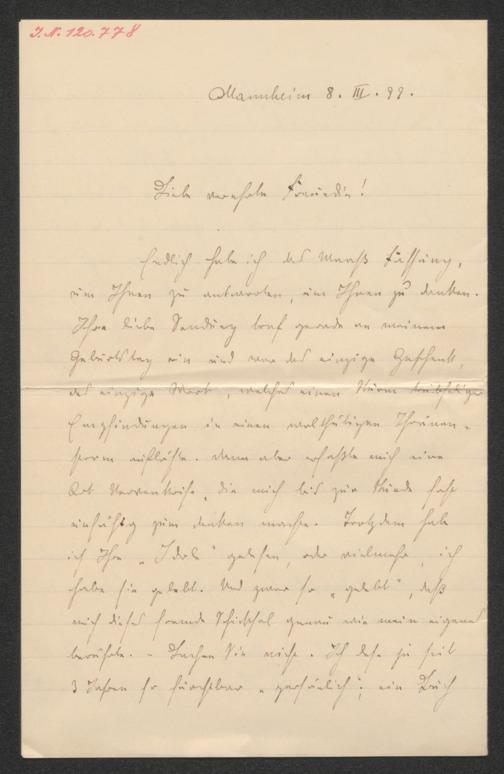 J.N. 120.778
Mannheim 8. III. 99.
Liebe verehrte Freundin!
Endlich habe ich das Maaß Fassung,
um Ihnen zu antworten, um Ihnen zu danken.
Ihre liebe Sendung traf gerade an meinem
Geburtstag ein und war das einzige Geschenk,
das einzige Wort, welches einen Sturm
Empfindungen in einen wolthätigen Thränen-
strom auflöste. Dann aber erfaßte mich eine
Art Nervenkrise, die mich bis zur Stunde fast
unfähig zum denken machte. Trotzdem habe
ich Ihre „Idole" gelesen, oder vielmehr, ich
habe sie gelebt. Und zwar so „gelebt", daß
mich dieses fremde Schicksal genau wie mein eigenes
berührte. - Lachen Sie nicht. Ich lese ja seit
3 Jahren so furchtbar „persönlich"; ein Buch